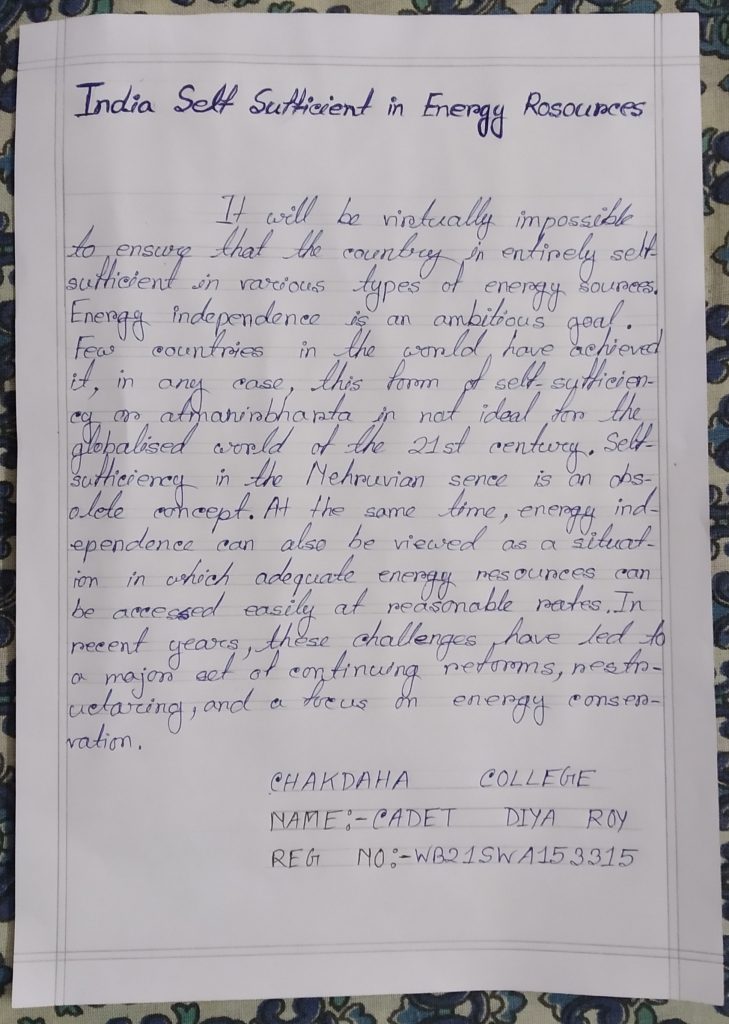 India Self Sufficient in Energy Rosources
It will be virtually impossible
to ensure that the country in entirely self-
sufficient in various types of energy sources.
Energy independence is an ambitious goal.
Few countries in the world, have achieved
it, in any case, this form of self-sufficien-
cy or atmanirbharta in not ideal for the
globalised world of the 21st century. Self-
sufficiency in the Nehruvian sence is an obs-
olete concept. At the same time, energy ind-
ependence can also be viewed as a situat-
ion in which adequate energy resources can
be accessed easily at reasonable rates. In
recent years, these challenges, have led to
a major set of continuing reforms, restr-
uctaring, and a focus on energy conser-
vation.
CHAKDAHA COLLEGE
NAME:-CADET DIYA ROY
REG NO:-WB21SWA153315